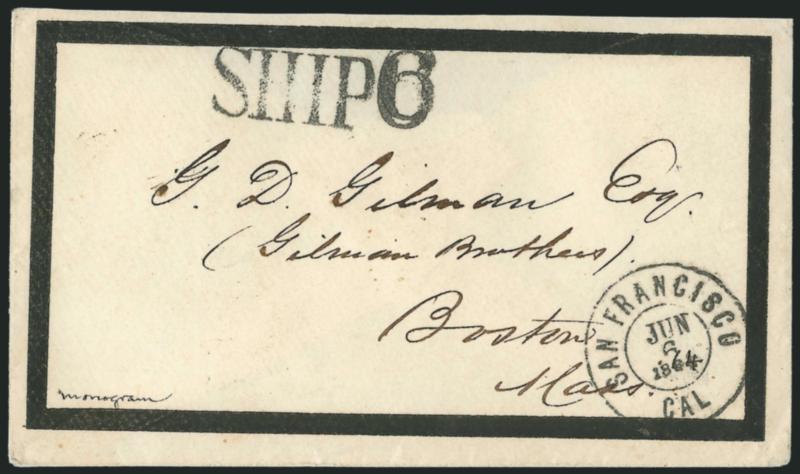 SHIP 6
G. D. Gilman Esq.
(Gilman Brothers).
Boston
Mass.
SAN FRANCISCO
JUN
6
1864
CAL
monogram